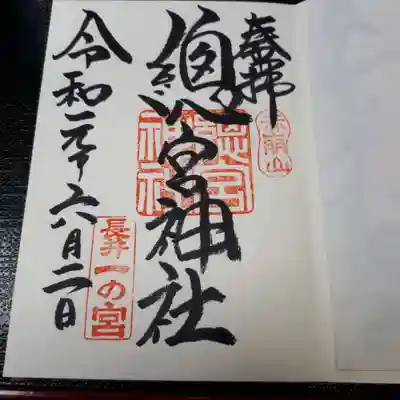 奉拝
總宮神社
總宮
神社
令和元年六月二日
長井
一の宮